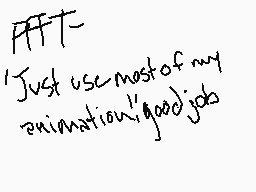 PFFT-
"Just use most of my
animation!" good job